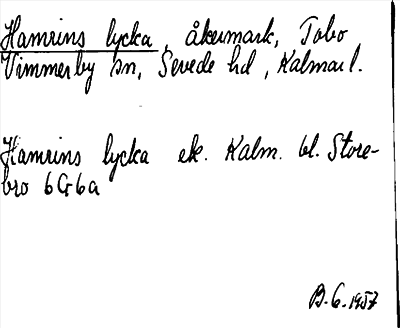 Hamrins lycka, åkermark, Tobo
Vimmerby sn, Sevede hd, Kalmar l.
Hamrins lycka ek. Kalm. bl. Store-
bro 6G6a
B.G. 1957